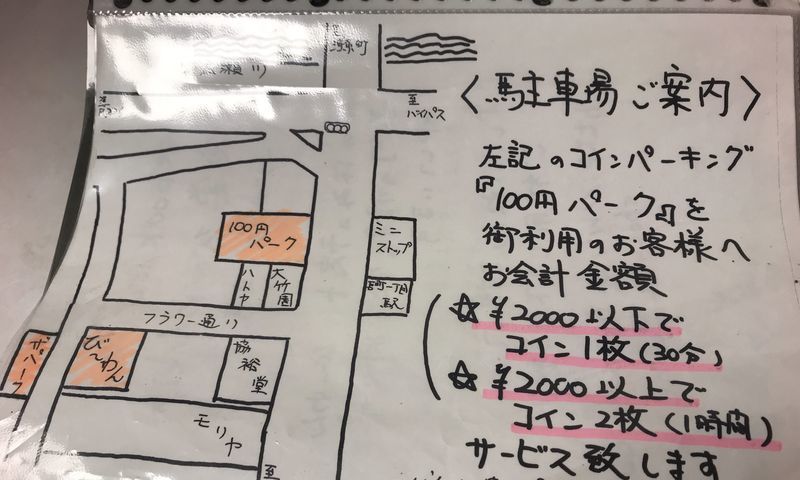 〈駐車場ご案内〉
左記のコインパーキング
『100円パーク』を
御利用のお客様へ
お会計金額
☆¥2000以下で
コイン1枚(30分)
☆¥2000以上で
コイン2枚(1時間)
サービス致します
至
バイパス
100円
パーク
ミニ
ストップ
ハトヤ
大竹園
駅
フラワー通り
ザパーク
び〜わん
協裕堂
モリヤ
至